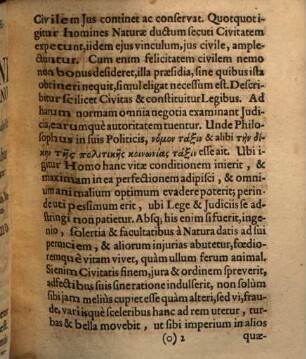 Civilem Jus continet ac conservat. Quotquot i-
gitur Homines Naturæ ductum secuti Civitatem
expetunt, iidem ejus vinculum, jus civile, ample-
ctuntur. Cum enim felicitatem civilem nemo
non bonus desideret, illa præsidia, sine quibus ista
obtineri nequit, simul eligat necessum est. Descri-
bitur scilicet Civitas & constituitur Legibus. Ad
harum normam omnia negotia examinant Judi-
cia, earumque autoritatem tuentur. Unde Philo-
sophus in suis Politicis, νόμον τάξιν & alibi τὴν δί-
κην τῆς πολιτικῆς κοινωνίας τάξιν esse ait. Ubi i-
gitur Homo hanc vitæ conditionem inierit, &
maximam in ea perfectionem adipisci, & omni-
um animalium optimum evadere poterit; perin-
de uti pessimum erit, ubi Lege & Judiciis se ad-
stringi non patiatur. Absq; his enim si fuerit, inge-
nio, solertia & facultatibus à Natura datis ad sui
perniciem, & aliorum injurias abutetur, fœdio-
remque vitam vivet, quàm ullum ferum animal.
Si enim Civitatis finem, jura & ordinem spreverit,
adfectibus suis sine ratione indulserit, non solùm
sibi jam meliùs cupiet esse quàm alteri, sed vi, frau-
de, variisque sceleribus hanc ad rem utetur, tur-
bas & bella movebit, ut sibi imperium in alios
(o) 2
quæ-